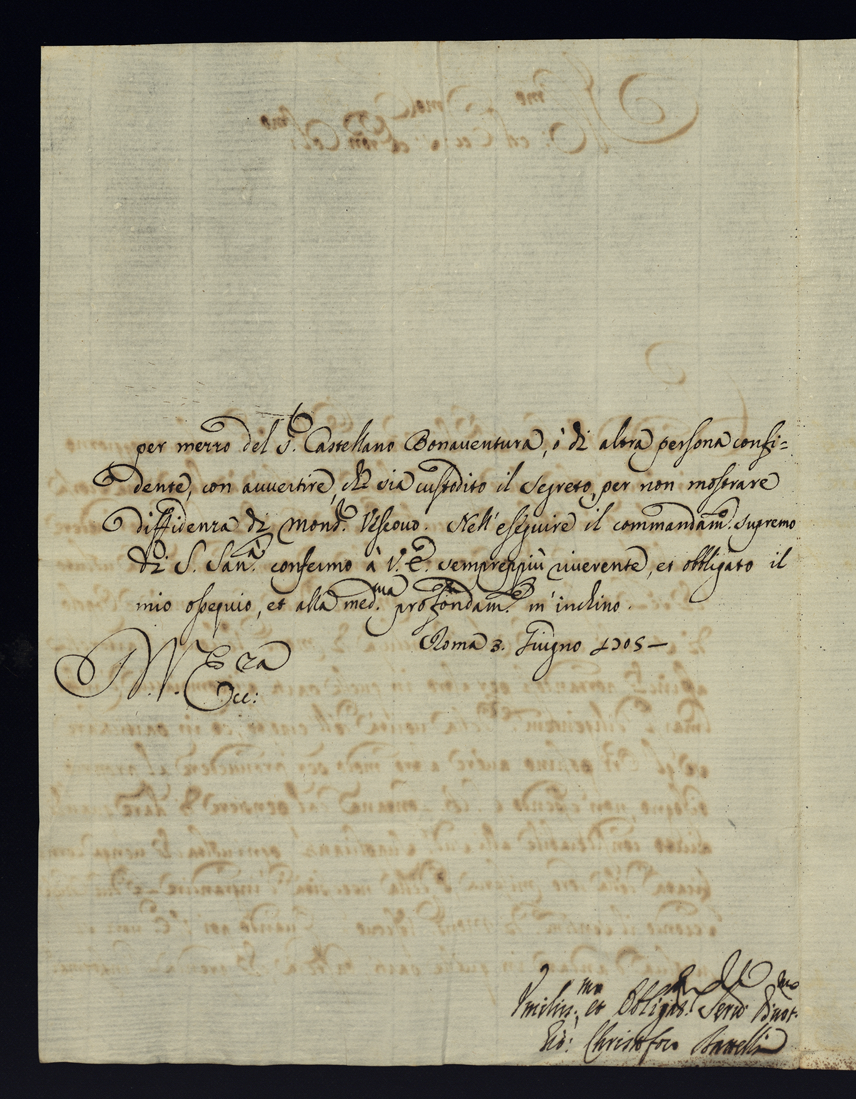 per mezzo del S.r Castellano Bonaventura, ó di altra persona confi=
dente, con avvertire, che sia custodito il segreto, per non mostrare
diffidenza di Mons.r Vescovo. Nell'eseguire il commandam.o supremo
di S. San.tà confermo à V. E. semprepiù riverente, et obbligato il
mio ossequio, et alla med.ma profondam.te m'inchino.
Roma 3. Giugno 1705—
V. Ecza
Umiliss.mo et Obligat.mo Serv.
Gio: Christoforo